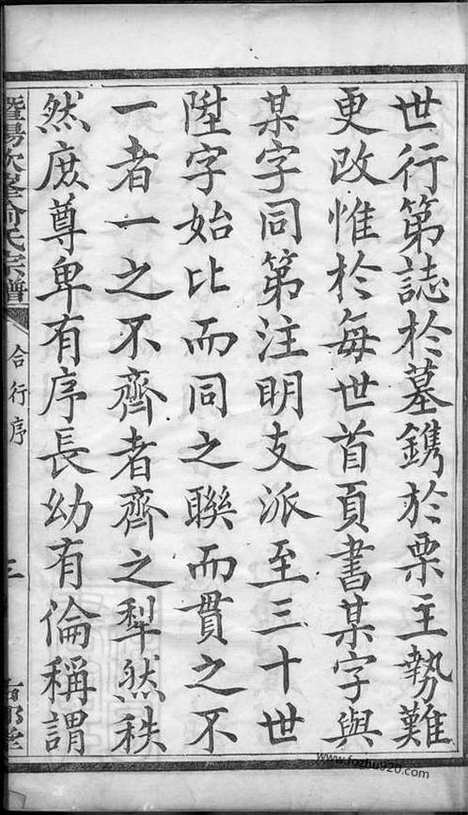 世行第誌於墓鐫於栗主勢難
更改惟於每世首頁書某字與
某字同第注明支派至三十世
陞字始比而同之聯而貫之不
一者一之不齊者齊之犁然秩
然庶尊卑有序長幼有倫稱謂
暨陽次峯俞氏宗譜
合行序
三
www.fozhu920.com